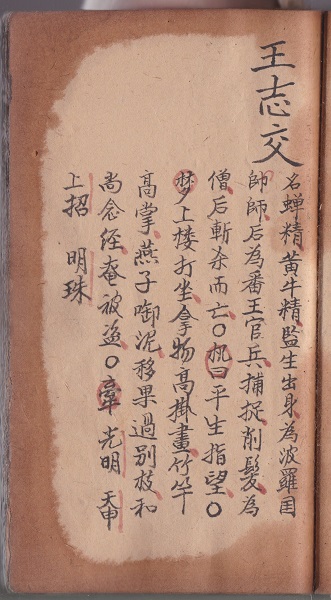 王志交
名蝉精黄牛精監生出身為波羅国
師師后為番王官兵捕捉削髮為
僧后斬杀而亡〇机曰平生指望〇
梦上楼打坐拿物高掛畫竹竿
高掌燕子啣泥移果過別枝和
尚念经奄被盗〇章光明 天申
上招 明珠